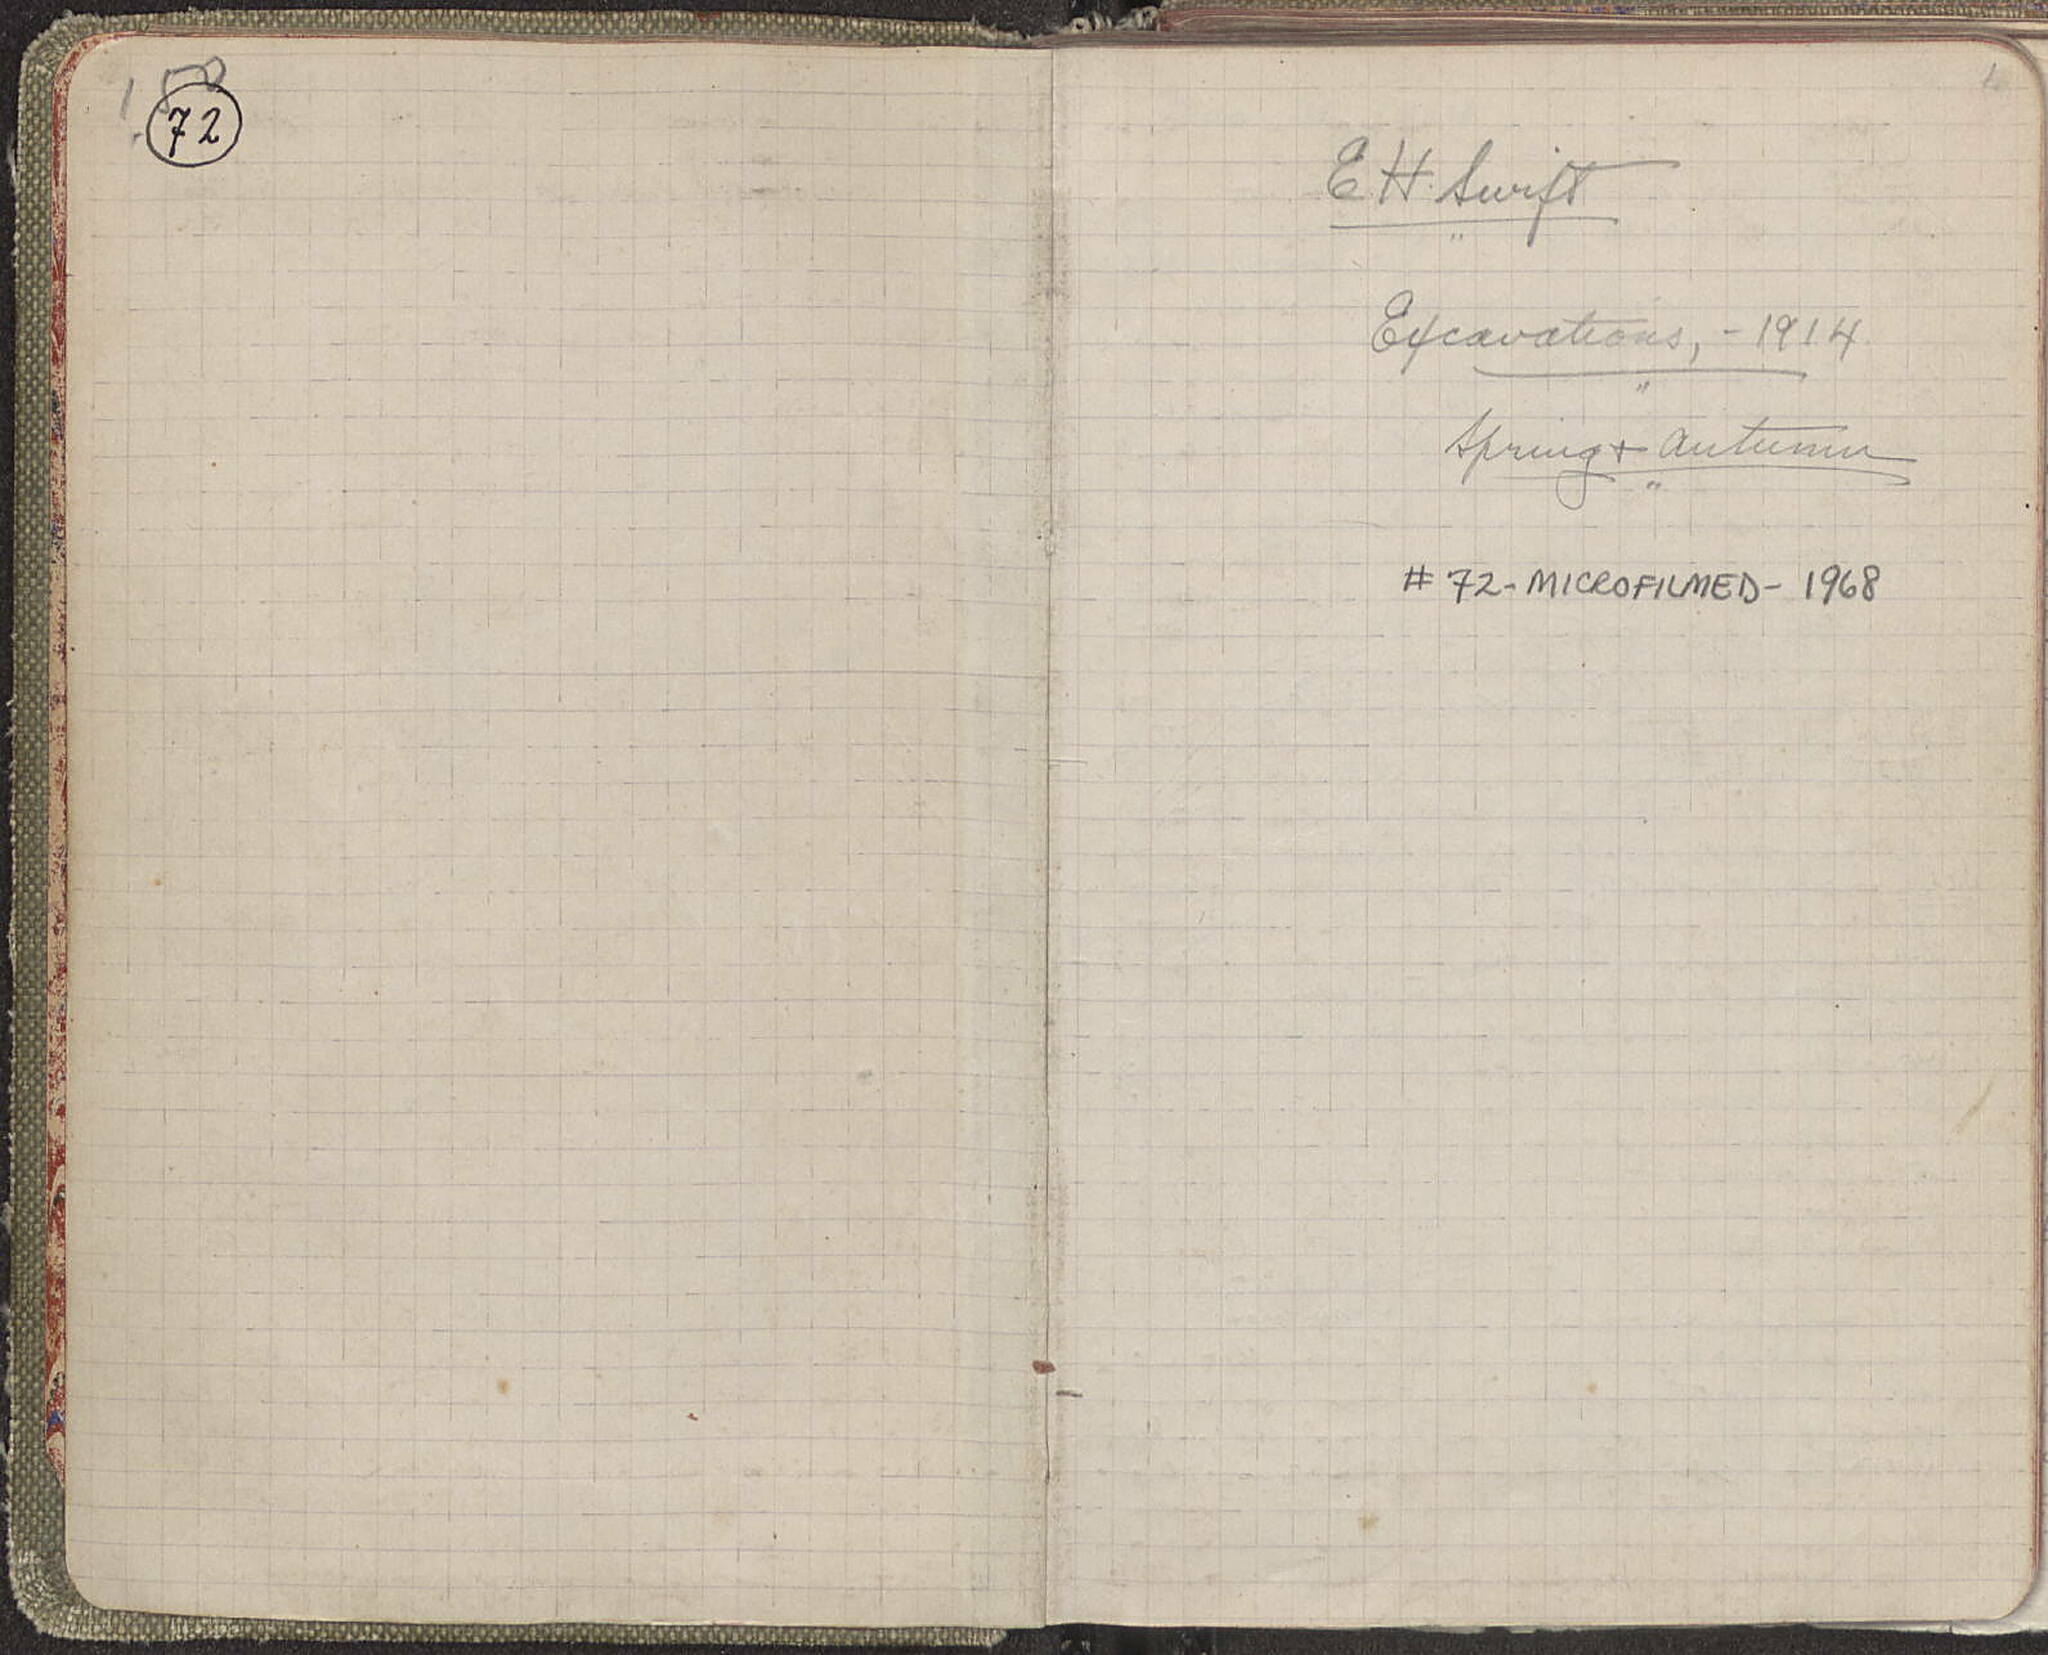 158
72
1
E. H. Swift
Excavations, - 1914
Spring & Autumn
# 72 - MICROFILMED - 1968